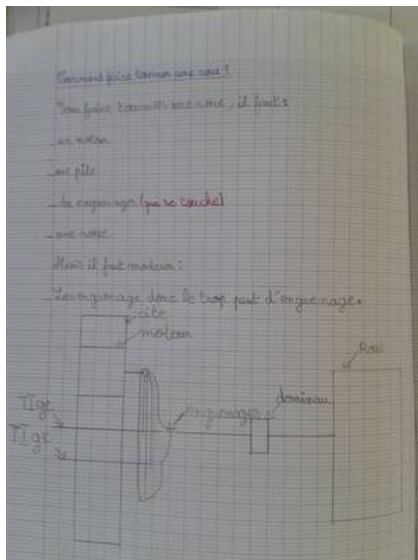 Comment faire tourner une roue ?
Pour faire tourner une roue, il faut :
_ un moteur
_ une pile
_ des engrenages (qui se touche)
_ une roue
Mais il faut
L'engrenage donc le trop peut d'engrenage.
moteur
Roue
Tige
engrenages
Tige